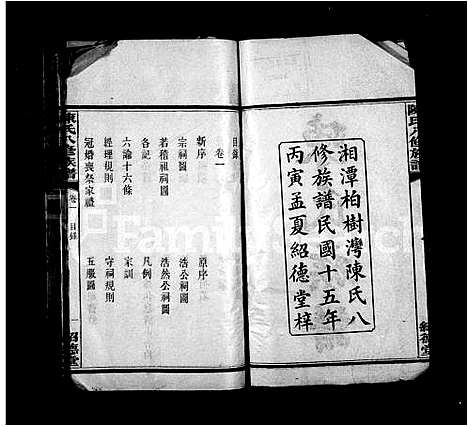 陳氏八修族譜
湘潭柏樹灣陳氏八
修族譜民國十五年
丙寅孟夏紹德堂梓
紹德堂
目錄
卷一
新序 原序
宗祠圖 浩公祠圖
若稽祖祠圖 浩然公祠圖
各記 凡例
六諭十六條 家訓
經理規則 守祠規則
冠婚喪祭家禮 五服圖
陳氏八修族譜 卷一 目錄 一 紹德堂
FamilySearch